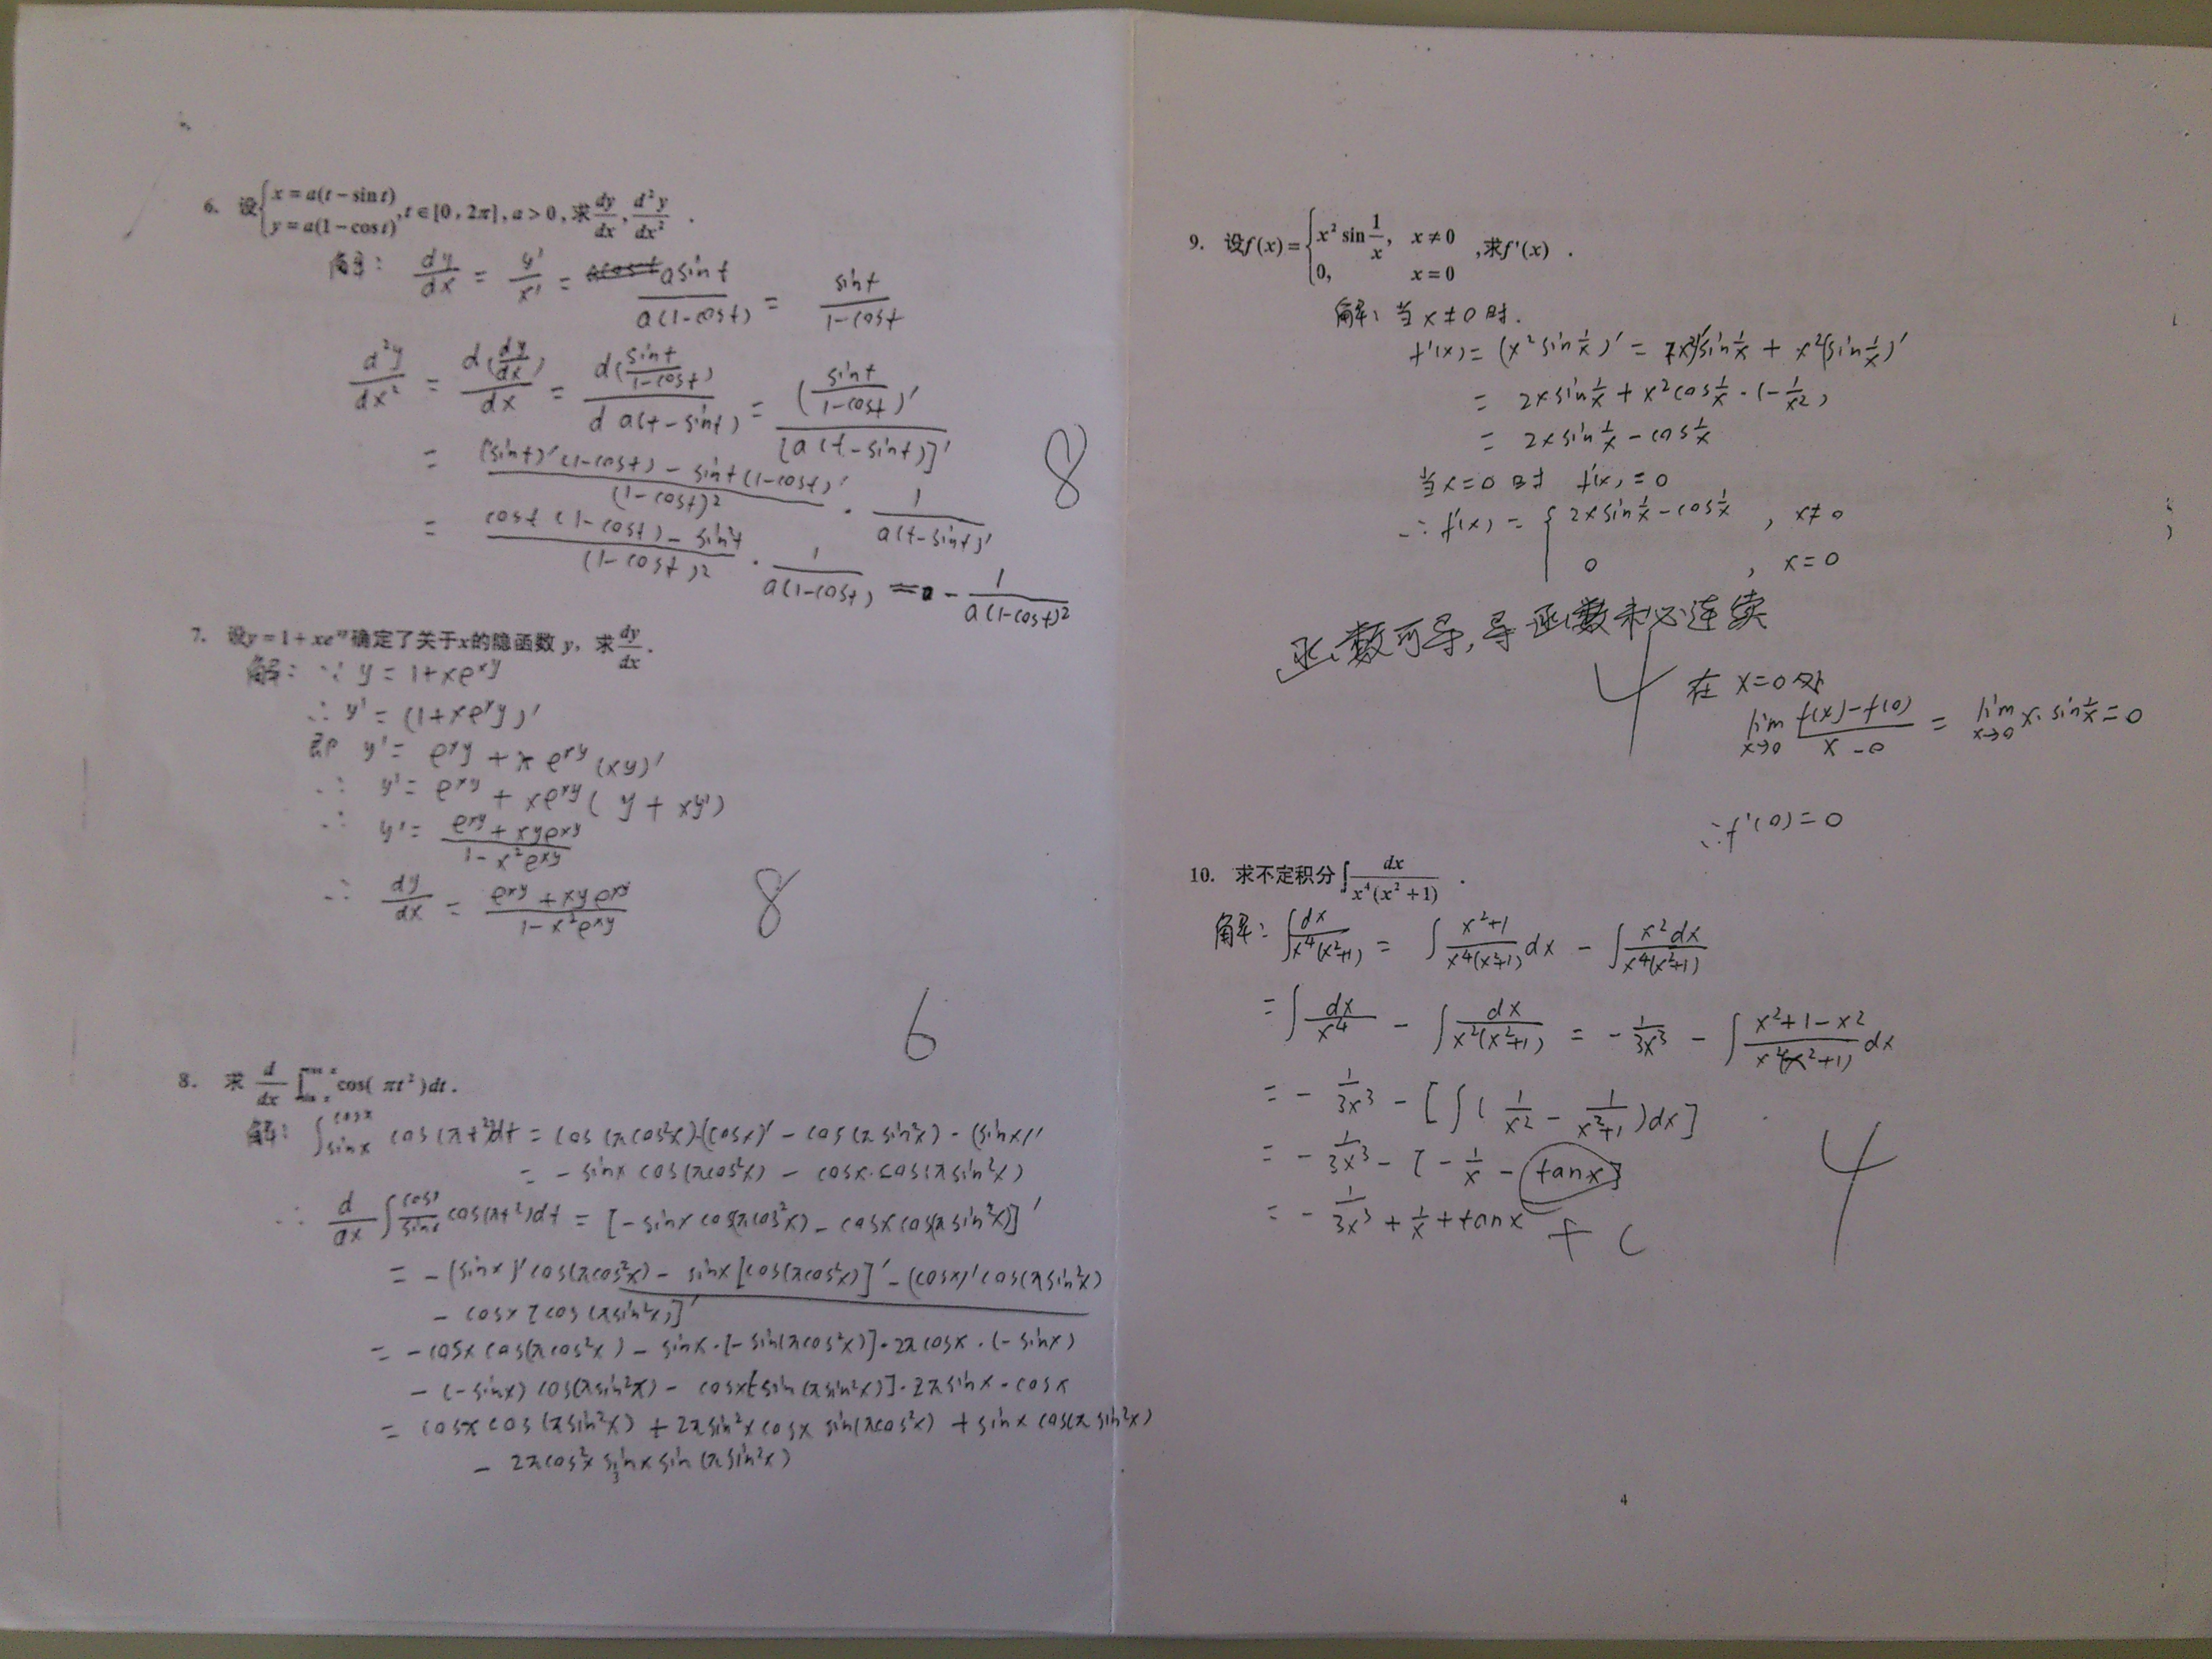 6. 设{x = a(t − sin t) y = a(1 − cos t), t ∈ [0, 2π], a > 0, 求 dy/dx, d²y/dx².
解: dy/dx = y'/x' = a sin t / a(1-cos t) = sin t / 1-cos t
d²y/dx² = d(dy/dx)/dx = d(sin t/1-cos t) / d a(t-sin t) = (sin t/1-cos t)' / [a(t-sin t)]'
= (sin t)'(1-cos t) - sin t(1-cos t)' / (1-cos t)² · 1 / a(t-sin t)'
= cos t (1-cos t) - sin²t / (1-cos t)² · 1 / a(1-cos t) = - 1 / a(1-cos t)²
8
7. 设y = 1 + xe^{xy}确定了关于x的隐函数 y, 求 dy/dx.
解: ∵ y = 1 + xe^{xy}
∴ y' = (1 + xe^{xy})'
即 y' = e^{xy} + x e^{xy} (xy)'
∴ y' = e^{xy} + xe^{xy} ( y + xy')
∴ y' = e^{xy} + xye^{xy} / 1 - x²e^{xy}
∴ dy/dx = e^{xy} + xy e^{xy} / 1 - x²e^{xy}
8
8. 求 d/dx ∫ cos(πt²)dt.
解: ∫_{sin x}^{cos x} cos(πt²)dt = cos(πcos²x)(cos x)' - cos(πsin²x) · (sin x)'
= - sin x cos(πcos²x) - cos x · cos(πsin²x)
∴ d/dx ∫_{sin x}^{cos x} cos(πt²)dt = [- sin x cos(πcos²x) - cos x cos(πsin²x)]'
= - (sin x)' cos(πcos²x) - sin x [cos(πcos²x)]' - (cos x)' cos(πsin²x)
- cos x [cos(πsin²x)]'
= - cos x cos(πcos²x) - sin x · [- sin(πcos²x)] · 2πcos x · (-sin x)
- (-sin x) cos(πsin²x) - cos x[-sin(πsin²x)] · 2πsin x · cos x
= cos x cos(πsin²x) + 2πsin²x cos x sin(πcos²x) + sin x cos(πsin²x)
- 2πcos²x sin x sin(πsin²x)
6
9. 设f(x) = {x² sin 1/x, x ≠ 0 0, x = 0, 求f'(x).
解: 当 x ≠ 0 时.
f'(x) = (x² sin 1/x)' = (x²)' sin 1/x + x²(sin 1/x)'
= 2x sin 1/x + x² cos 1/x · (- 1/x²)
= 2x sin 1/x - cos 1/x
当x = 0 时 f'(x) = 0
∴ f'(x) = { 2x sin 1/x - cos 1/x , x ≠ 0
0 , x = 0
函数可导, 导函数未必连续
4
在 x = 0 处
lim_{x→0} f(x) - f(0) / x - 0 = lim_{x→0} x · sin 1/x = 0
∴ f'(0) = 0
10. 求不定积分 ∫ dx / x⁴(x² + 1) .
解: ∫ dx / x⁴(x²+1) = ∫ x²+1 / x⁴(x²+1) dx - ∫ x²dx / x⁴(x²+1)
= ∫ dx/x⁴ - ∫ dx / x²(x²+1) = - 1/3x³ - ∫ x²+1-x² / x²(x²+1) dx
= - 1/3x³ - [ ∫ ( 1/x² - 1/x²+1 ) dx ]
= - 1/3x³ - [ - 1/x - tan x ]
= - 1/3x³ + 1/x + tan x + C
4
4